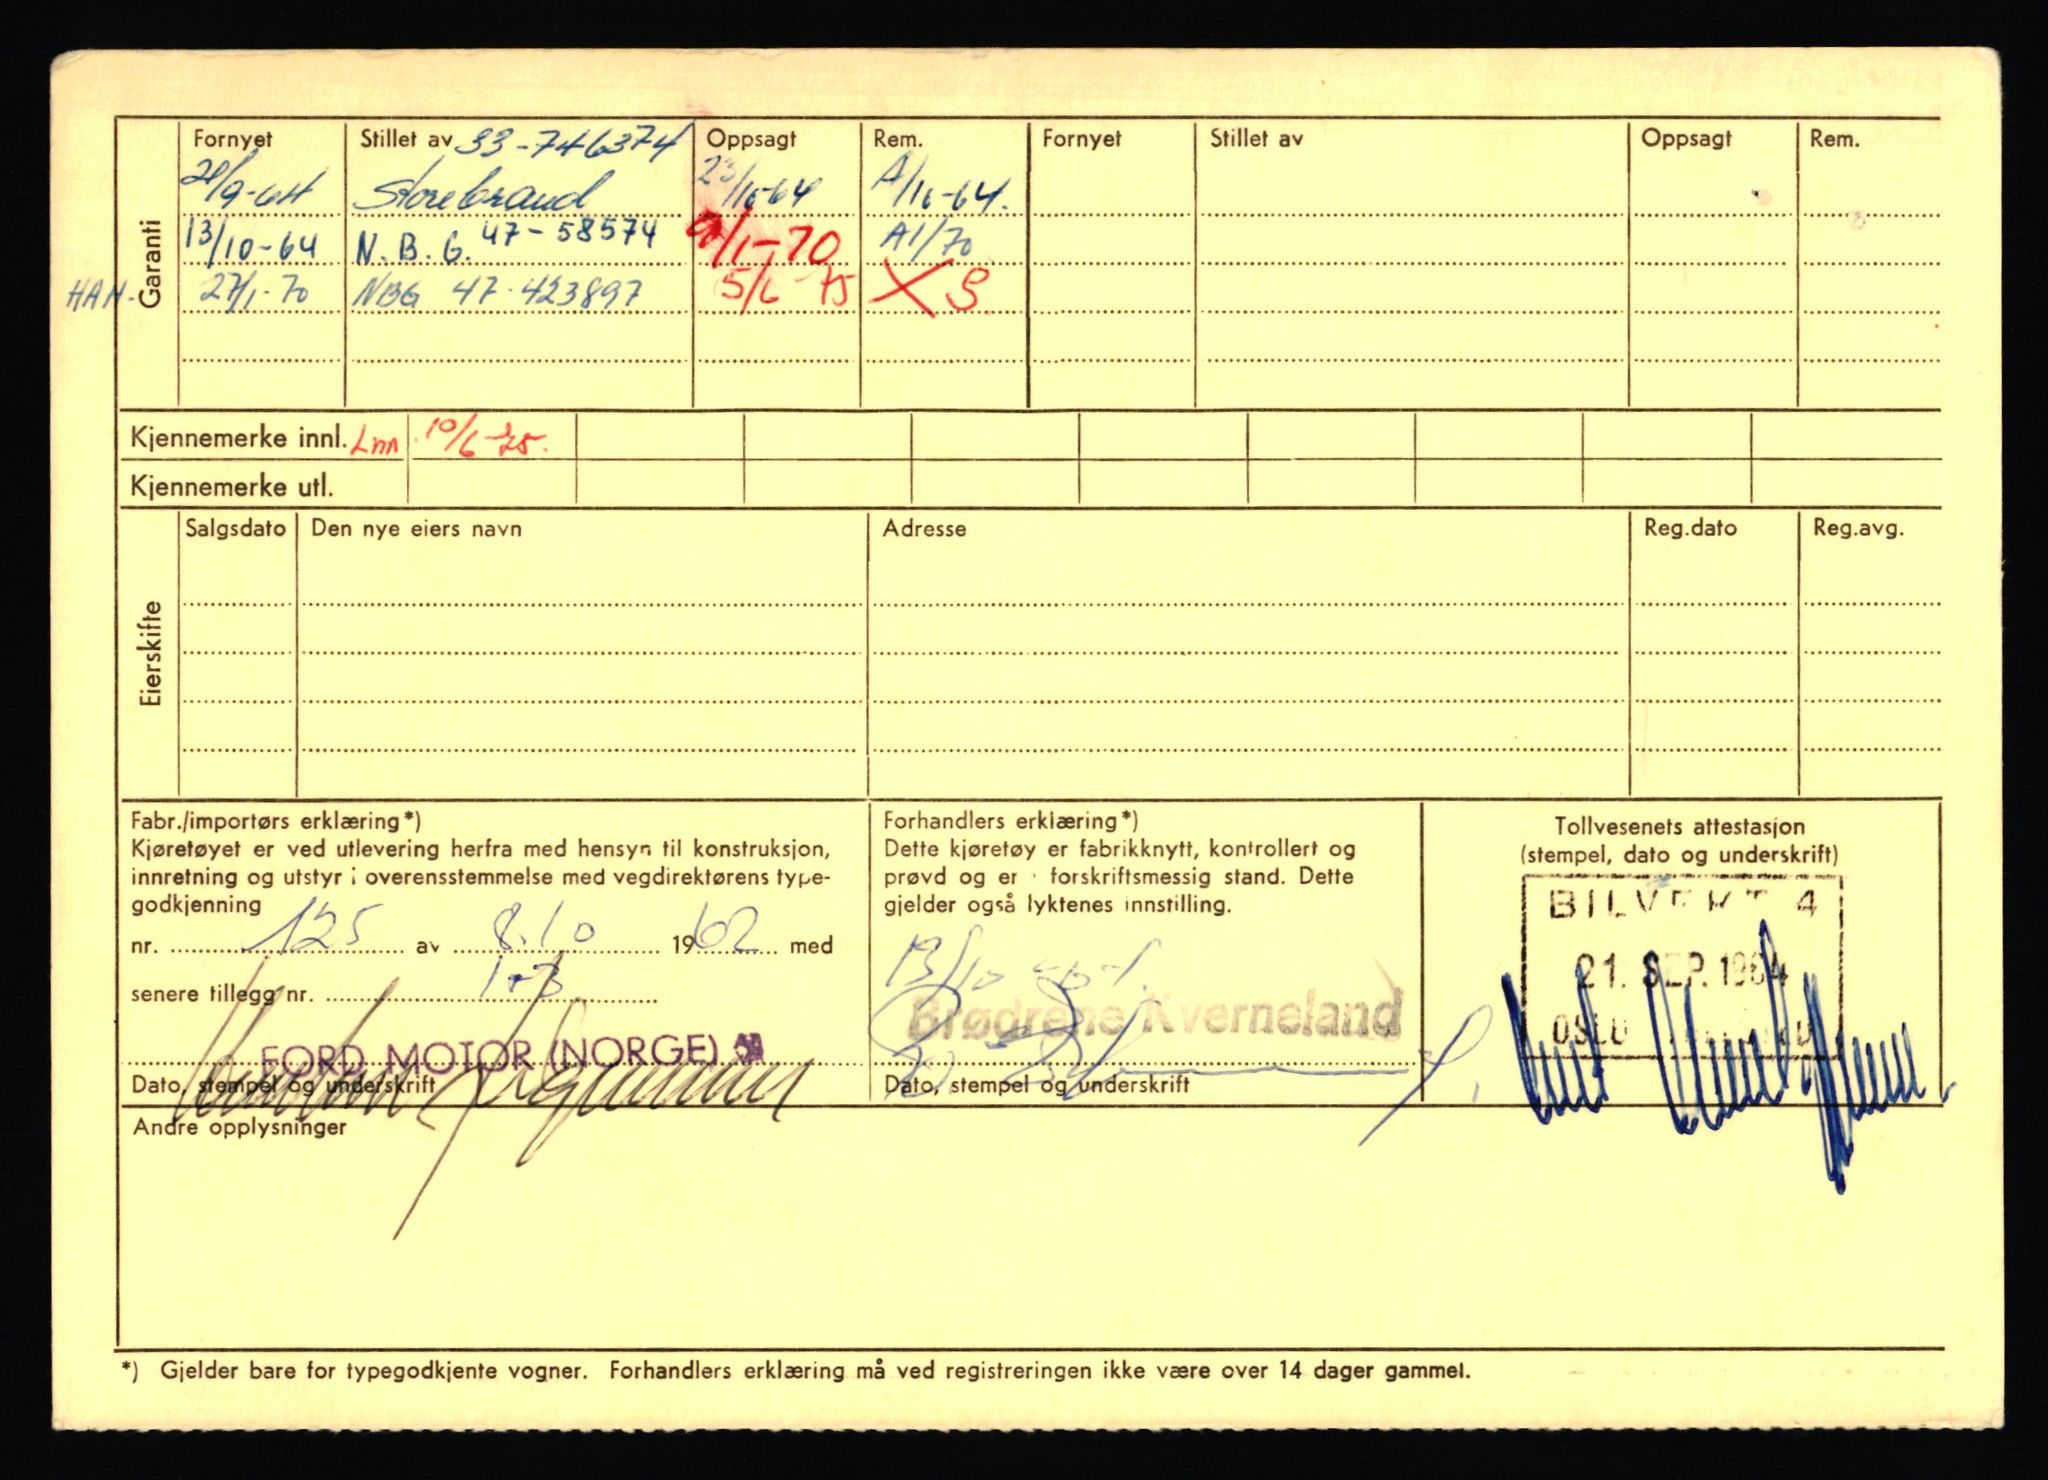 Garanti
Fornyet Stillet av 33-746374 Oppsagt Rem. Fornyet Stillet av Oppsagt Rem.
/9-64 Storebrand 23/10-64 A/10-64.
13/10-64 N.B.G. 47-58574 /1-70 A1/70
HAN- 27/1-70 NBG 47-423897 5/6 75 X S
Kjennemerke innl. Lnn 10/6-75.
Kjennemerke utl.
Eierskifte
Salgsdato Den nye eiers navn Adresse Reg.dato Reg.avg.
Fabr./importørs erklæring*)
Kjøretøyet er ved utlevering herfra med hensyn til konstruksjon,
innretning og utstyr i overensstemmelse med vegdirektørens type-
godkjenning
nr. 125 av 8.10 1962 med
senere tillegg nr. 1+3
FORD MOTOR (NORGE) AS
Dato, stempel og underskrift
Forhandlers erklæring*)
Dette kjøretøy er fabrikknytt, kontrollert og
prøvd og er i forskriftsmessig stand. Dette
gjelder også lyktenes innstilling.
13/10-64.
Brødrene Kverneland
Dato, stempel og underskrift
Tollvesenets attestasjon
(stempel, dato og underskrift)
BILVEKT 4
21. SEP. 1964
OSLO
Andre opplysninger
*) Gjelder bare for typegodkjente vogner. Forhandlers erklæring må ved registreringen ikke være over 14 dager gammel.